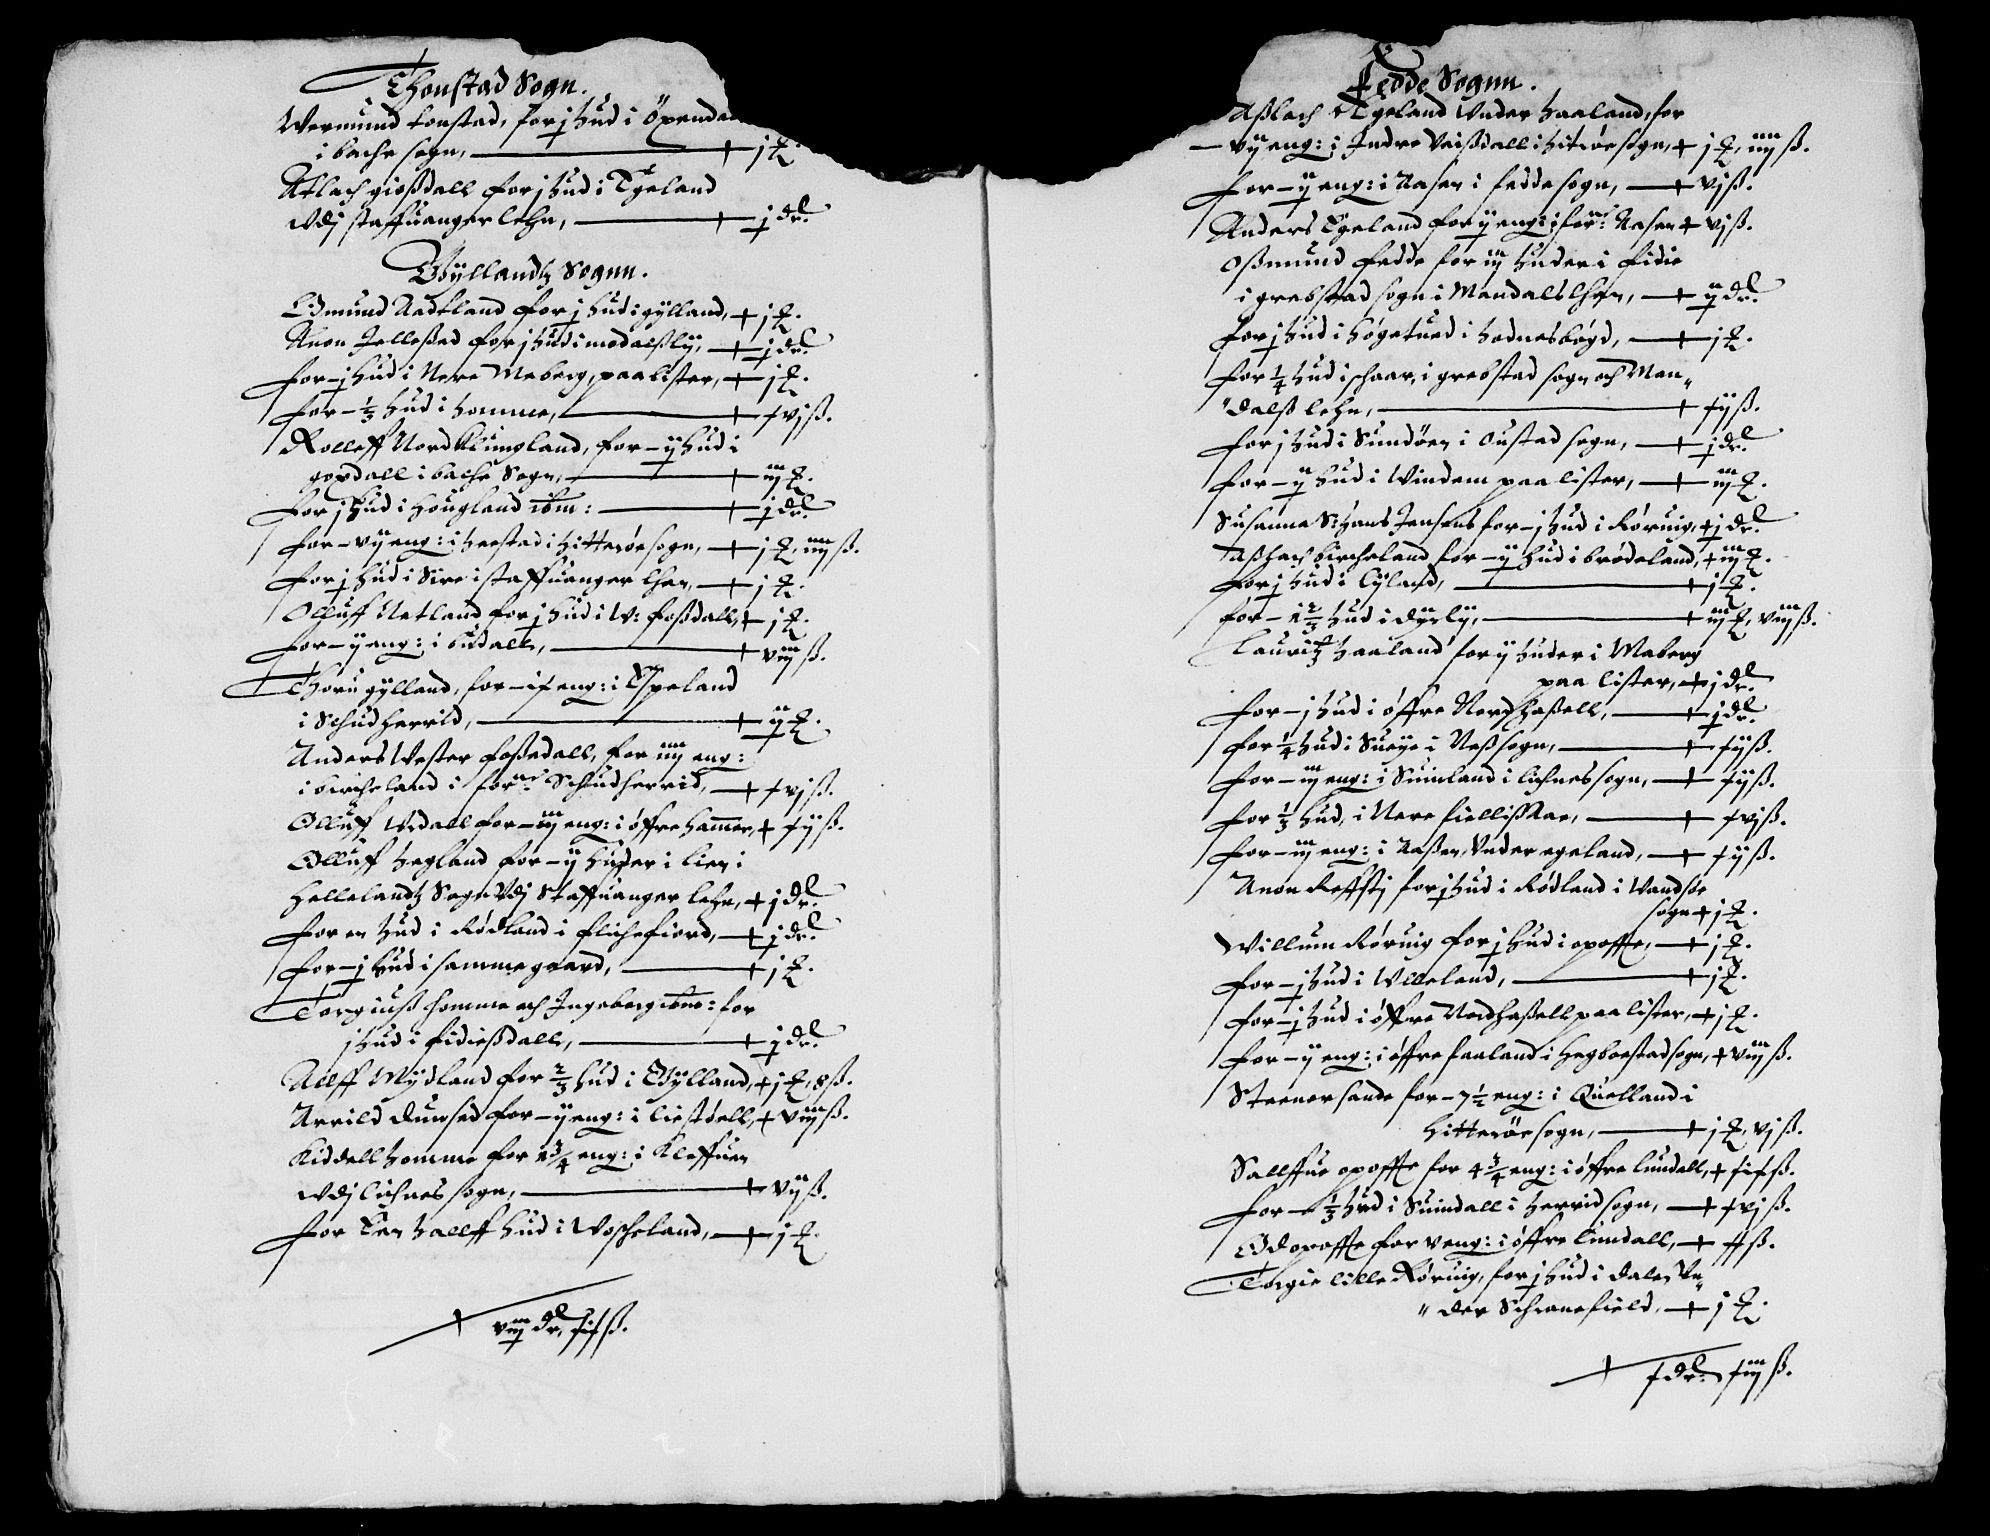 Thonstad Sogn.
Wermund tonstad, for j hud i Öxendal
i bache sogn, j
Atlach giosdall for j hud i Egeland
Vdj staffuanger lehn, j dr.
Gÿllandtz Sognn.
Edmund Aadtland for j hud i gÿlland, j
Anon Jelleßad for j hud i modalsli, j dr.
for j hud i Nere Maberg, paa lister, j
for 1/3 hud i homme, xvj ß.
Rolleff Nordklungland, for ij hud i
goxdall i bache Sogn, iij
for j hud i hougland ibm: j dr.
for vij eng: i heestad i hitterøe sogn, j iiij ß.
for j hud i Sire i staffuanger lhen, j
Olluff Netland for j hud i W: foßdall, j
for ij eng: i budall, viij ß.
Thoru gÿlland, for ix eng: i Espeland
i Schudherrid, ij
Anders Wester foßedall, for iiij eng:
i bircheland i forne Schudherrid, xvj ß.
Olluff Urdall for iij eng: i øffre hammer, xij ß.
Olluff hegland for ij huder i lien i
hellelandtz Sogn Vdj Staffuanger lehn, j dr.
for en hud i Rødland i flichefiord, j dr.
for j hud i samme gaard, j
Torgiuß homme och Ingeborg ibm: for
j hud i fidießdall, j dr.
Alff Mÿdland for 2/3 hud i Gÿlland, j 8 ß.
Arrild dunsed for ij eng: i liestøell, viij ß.
Kiddell homme for 1 3/4 eng: i Kleffuen
Vdj lichnes sogn, vij ß.
for Een hallff hud i Woscheland, j
viij dr. xix ß.
Fedde Sognn.
Aßlach Egeland Vnder haaland, for
vij eng: i Indre Veißdall i hitrøe sogn, j iiij ß.
for ij eng: i Aasen i fedde sogn, vj ß.
Anders Egeland for ij eng: i forne: Aasen vj ß.
Oßmund fedde for iij huder i fidie
i grebstad sogn i Mandals lhen, ij dr.
for j hud i høgetued i hodnesbøgd, j
for 1/4 hud i schaar, i grebstad sogn och Man„
„dalß lehn, xij ß.
for j hud i Sundøen i Oustad sogn, j dr.
for ij hud i Windem paa lister, iij
Susanna S: hans Jensens for j hud i Røruig, j dr.
Aßlach bircheland for ij hud i brødeland, iij
for j hud i Eÿland, j
for 1 2/3 hud i dÿrlÿ, iij viij ß.
Lauridtz haaland for ij huder i Maberg
paa lister, j dr.
for j hud i øffre Nordhaßell, j dr.
for 1/4 hud i Sueÿe i Neß sogn, xij ß.
for iij eng: i Suinland i lichnes sogn, xij ß.
for 1/3 hud, i Nere fiellißkaar, xvj ß.
for iij eng: i Aaßen, Vnder egeland, xij ß.
Anon Reffstj for j hud i Rødland i Wandsøe
sogn j
Willum Røruig for j hud i opoffte, j
for j hud i Ulleland, j
for j hud i øffre Nordhaßell paa lister, j
for ij eng: i øffre faaland i hegboestad sogn, viij ß.
Steenersande for 7 1/2 eng: i Quelland i
hitterøe sogn, j vj ß.
Sallffue opoffte for 4 3/4 eng: i øffre lundall, xix ß.
for 1/3 hud i Suindall i herrid sogn, xvj ß.
Ed opoffte for v eng: i øffre lundall, xx ß.
Torgie lille Røruig, for j hud i dalen Vn„
„der Schranefield, j
x dr. xiij ß.